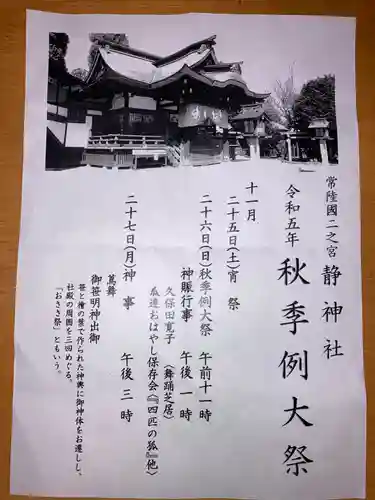 常陸國二之宮 静神社
令和五年 秋季例大祭
十一月
二十五日(土)宵祭
二十六日(日)秋季例大祭 午前十一時
神賑行事 午後一時
久保田寛子 (舞踊芝居)
瓜連おはやし保存会(『四匹の狐』他)
二十七日(月)神事 午後三時
萬舞
御笹明神出御
笹と檜の葉で作られた神輿に御神体をお遷しし、
社殿の周囲を三回めぐる。
「おささ祭」ともいう。